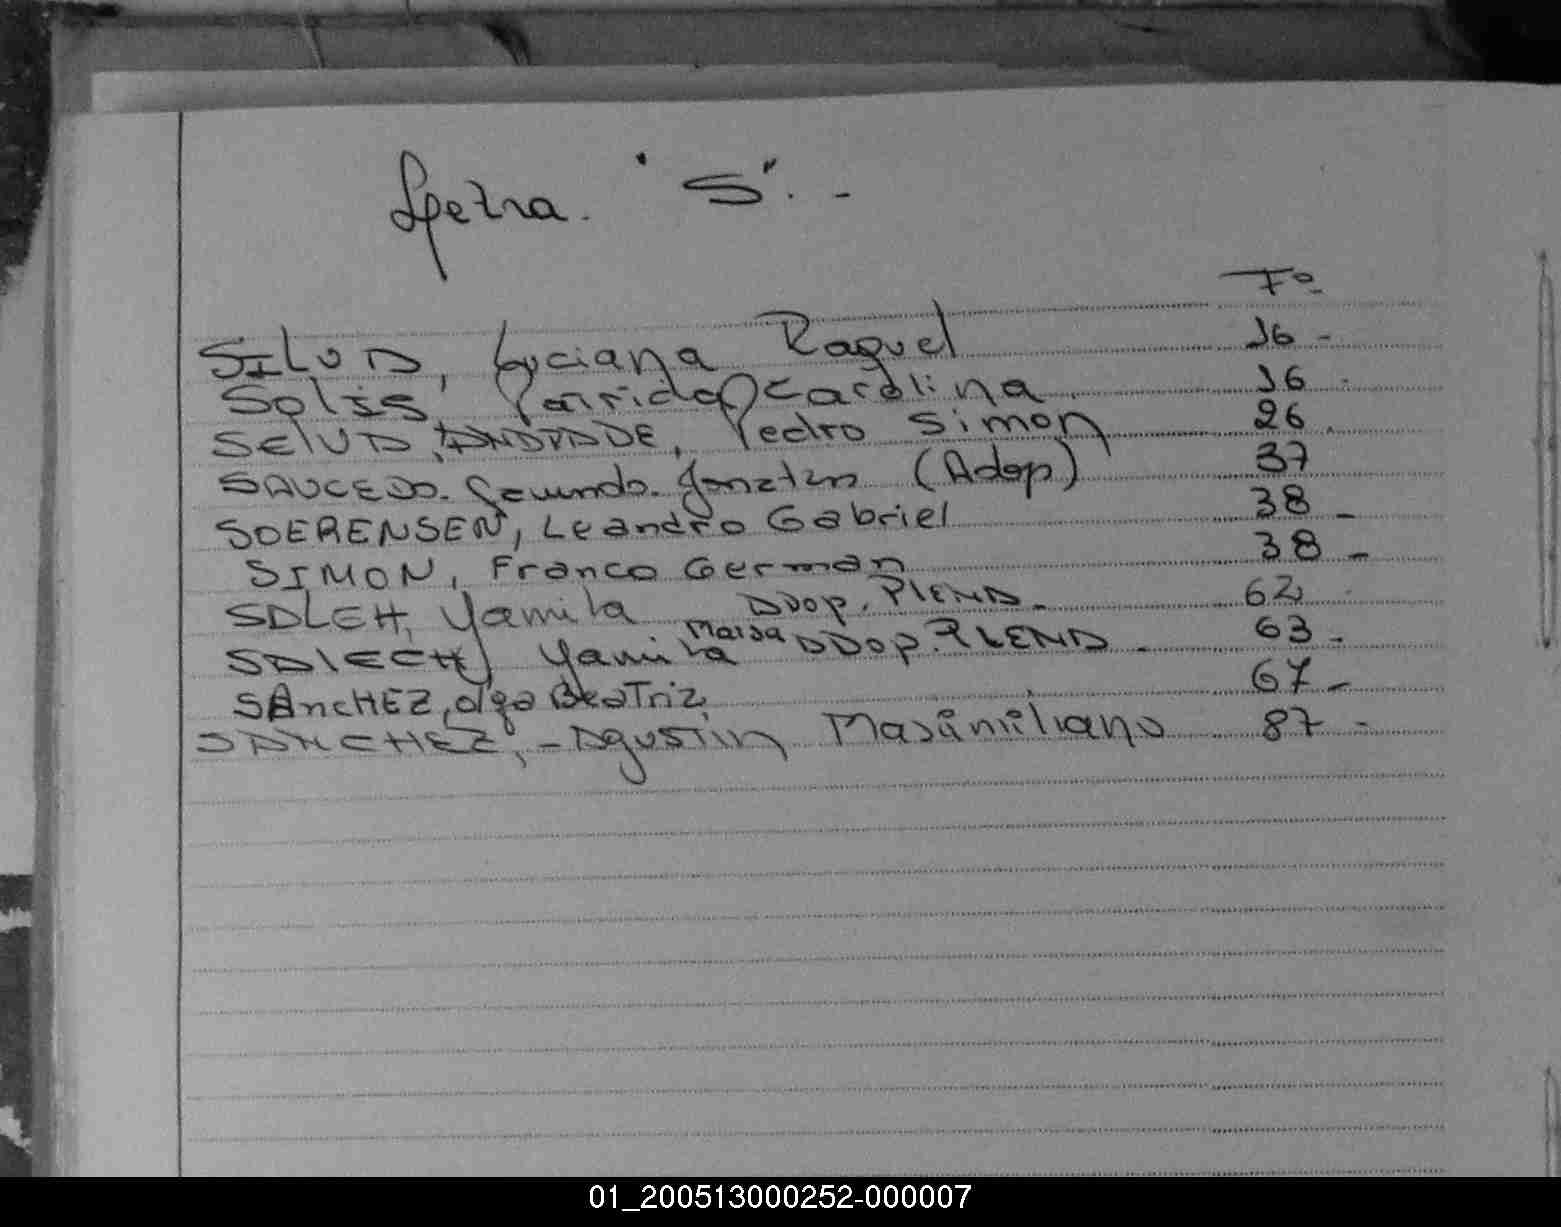 Letra "S".-
Fº
SILVA, Luciana Raquel 16-
Solis Patricia Carolina 16
SELVA ANDRADE, Pedro Simon 26
SAUCEDO. Facundo. Jonatan (Adop) 37
SOERENSEN, Leandro Gabriel 38-
SIMON, Franco German 38-
SALEH, Yamila Adop. PLENA- 62
SALECH Yamila Maria Adop. PLENA- 63-
SANCHEZ, olga BeaTriz 67-
SANCHEZ,-Agustin Maximiliano 87-
01_200513000252-000007